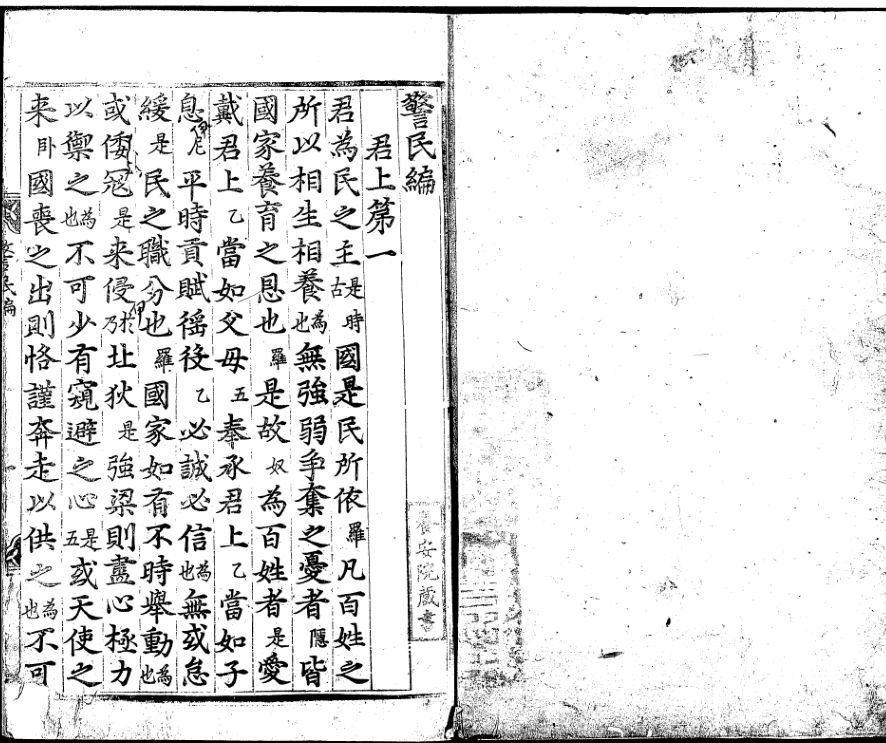 警民編
君上第一
君為民之主是古時國是民所依羅凡百姓之
所以相生相養為也無強弱爭奪之憂者隱皆
國家養育之恩也羅是故奴為百姓者是愛
戴君上乙當如父母五奉承君上乙當如子
息伊尼平時貢賦徭役乙必誠必信為也無或怠
緩是民之職分也羅國家如有不時舉動為也
或倭冦是来侵於乃北狄是強梁則盡心極力
以禦之為也不可少有窺避之心是五或天使之
来卧國喪之出則恪謹奔走以供之為也不可
警民編
養安院蔵書